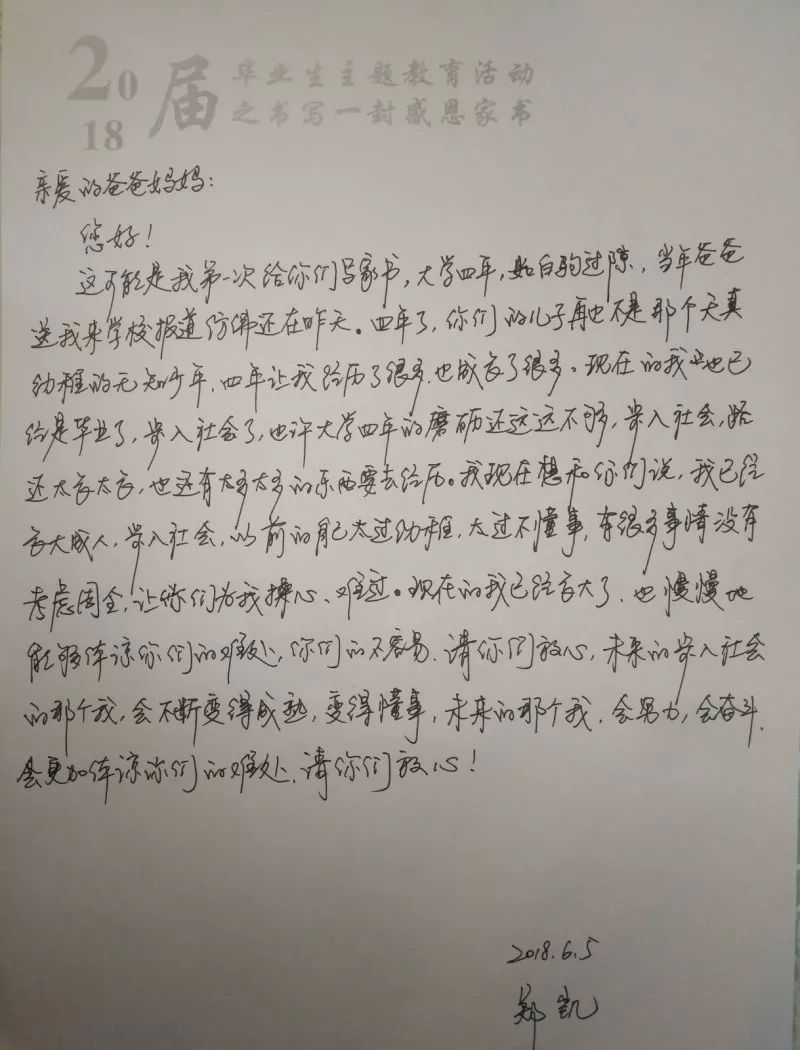 2018届 毕业生主题教育活动
之书写一封感恩家书
亲爱的爸爸妈妈：
您好！
这可能是我第一次给你们写家书，大学四年，如白驹过隙，当年爸爸
送我来学校报道仿佛还在昨天。四年了，你们的儿子再也不是那个天真
幼稚的无知少年，四年让我经历了很多，也成长了很多。现在的我也已
经是毕业了，步入社会了，也许大学四年的磨砺还远远不够，步入社会，路
还太长太长，也还有太多太多的东西要去经历。我现在想和你们说，我已经
长大成人，步入社会，以前的自己太过幼稚，太过不懂事，有很多事情没有
考虑周全，让你们为我操心、难过。现在的我已经长大了，也慢慢地
能够体谅你们的难处，你们的不容易，请你们放心，未来的步入社会
的那个我，会不断变得成熟，变得懂事，未来的那个我，会努力，会奋斗，
会更加体谅你们的难处，请你们放心！
2018.6.5
郑凯